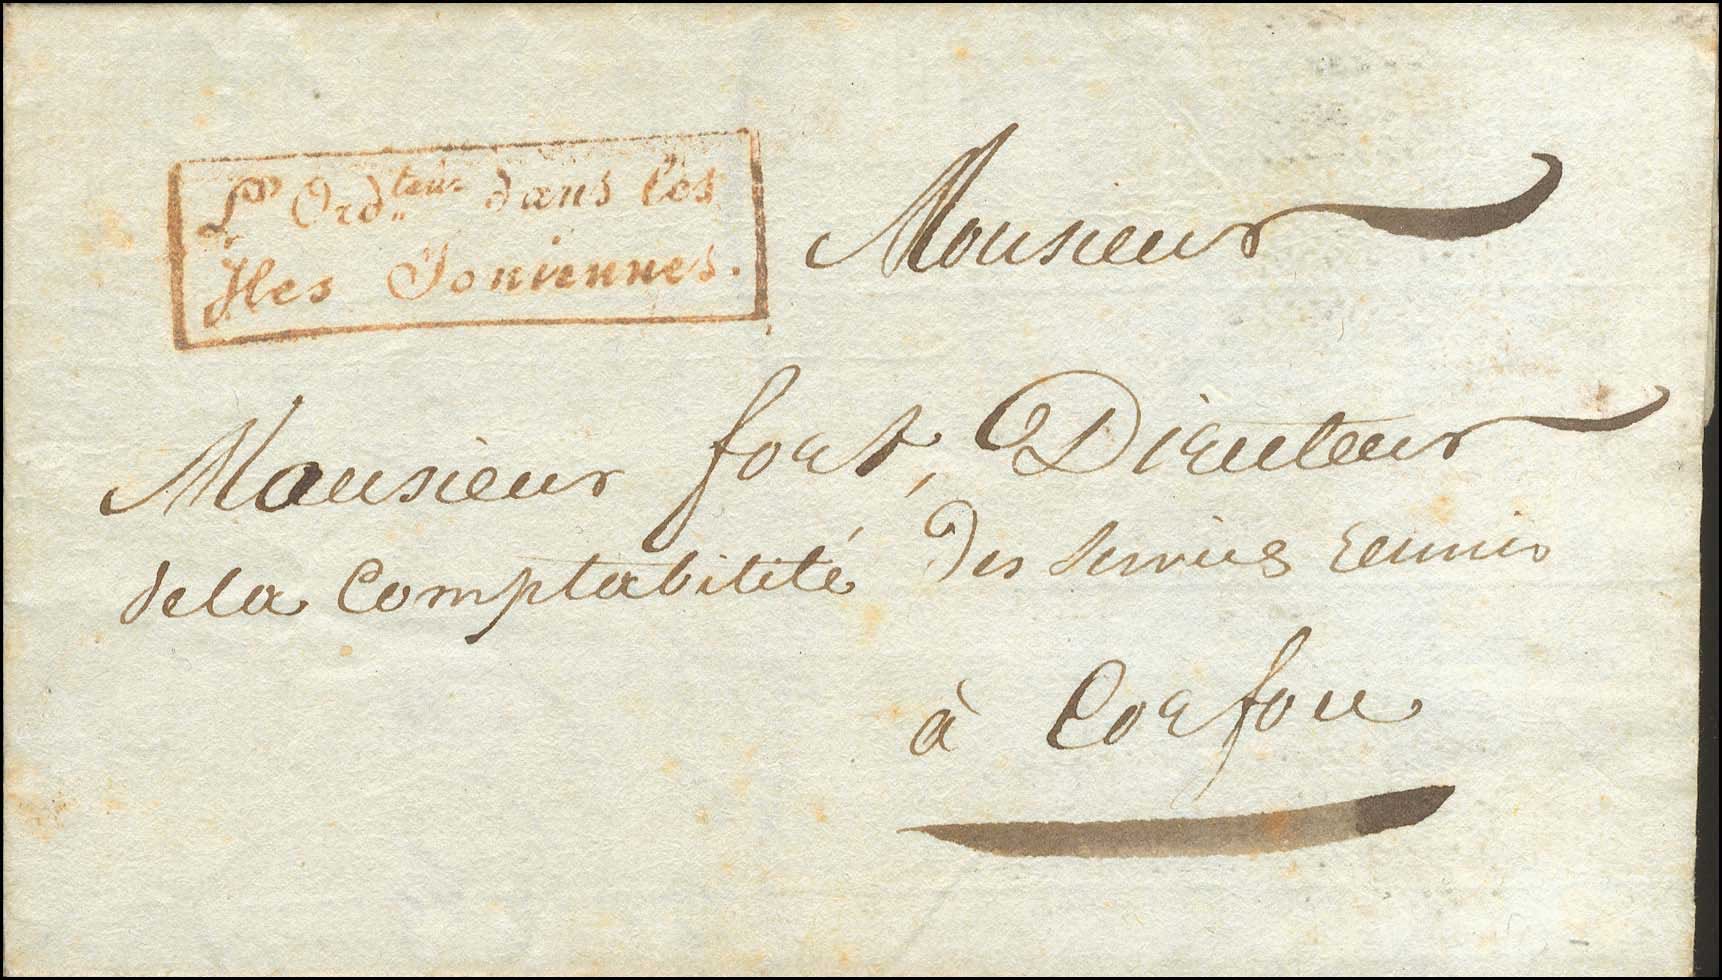 L'Ord.teur dans les
Iles Ioniennes.
Monsieur
Monsieur fort, Directeur
de la Comptabilité des Services réunis
à Corfou